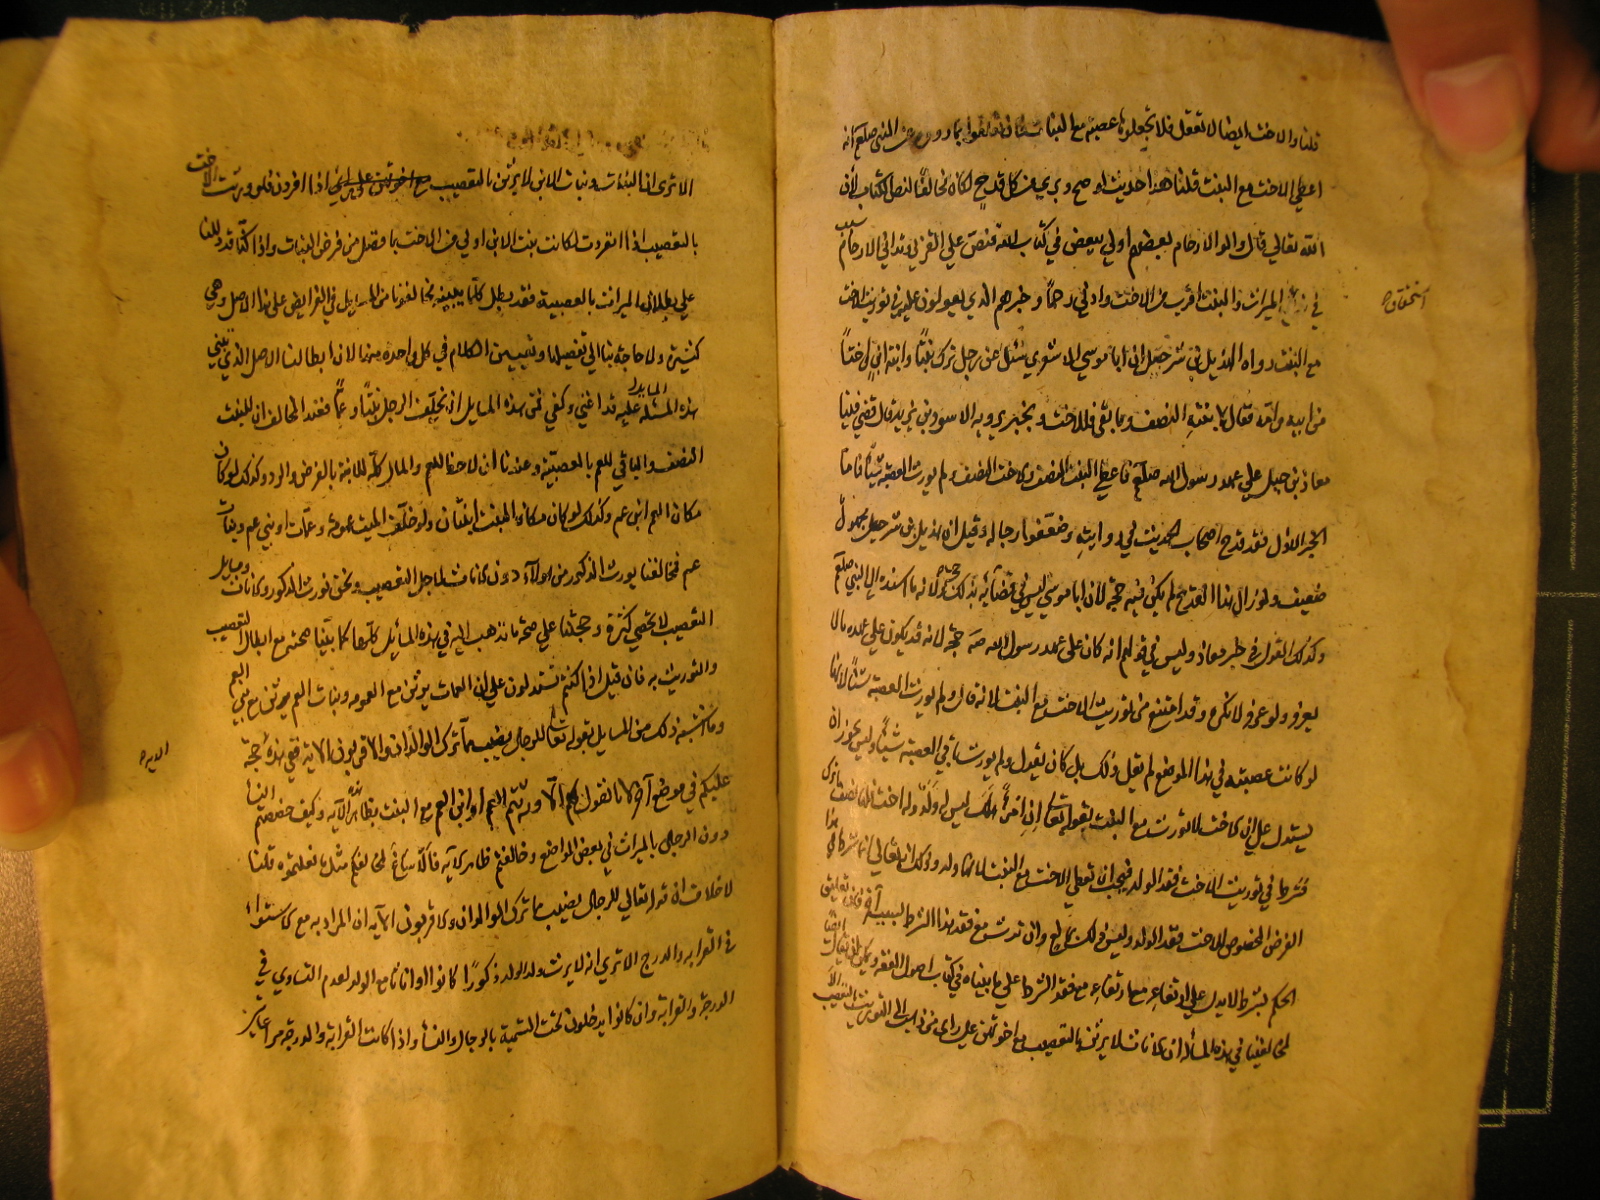 قلنا والاخت ايضا لا تعقل فلا تجعلوها عصبة مع البنات فان تعلقوا بما روى عن النبي صلعم انه
اعطى الاخت مع البنت قلنا هذا حديث لو صح وبرى من كل قدح لكان مخالفا لنص الكتاب لان
الله تعالى قال واولوا الارحام بعضهم اولى ببعض في كتاب الله فنص على القربى وتدانى الارحام سبب
في الميراث والبنت اقرب من الاخت وادنى رحما وخبرهم الذي يعولون عليه في توريث الاخت
استحقاق
مع البنت رواه الهذيل بن شرحبيل ان ابا موسى الاشعري سئل عن رجل ترك بنتا وابنة ابن واختا
من ابيه وامه فقال لابنته النصف وما بقي فللاخت وبخبر يرويه الاسود بن يزيد قال قضى فينا
معاذ بن جبل على عهد رسول الله صلعم فاعطى البنت النصف والاخت النصف ولم يورث العصبة شيئا فاما
الخبر الاول فقد قدح اصحاب الحديث في روايته وضعفوا رجاله وقيل ان هذيل بن شرحبيل مجهول
ضعيف ولو زال هذا القدح لم يكن فيه حجة لان ابا موسى ليس في قضائه بذلك حجة لانه ما اسنده الى النبي صلعم
وكذلك القول في خبر معاذ وليس في قولهم انه كان على عهد رسول الله صه حجة لانه قد يكون على عهده ما لا
يعرفه ولو عرفه لانكره وقد امتنع من توريث الاخت مع البنت لانه قال ولم يورث العصبة شيئا لانها
لو كانت عصبة في هذا الموضع لم يقل ذلك بل كان يقول ولم يورث باقي العصبة شيئا وليس يجوز ان
يستدل على ان الاخت لا تورث مع البنت بقوله تعالى ان امرؤ هلك ليس له ولد وله اخت فلها نصف ما ترك
فشرط في توريث الاخت فقد الولد فيجب ان لا تعطى الاخت مع البنت لانها ولد وذلك ان تعالى انما شرط في هذا
الفرض المخصوص للاخت فقد الولد وليس في ذلك بمانع وان ترث مع فقد هذا الشرط بسبب آخر فان تعليق
الحكم بشرط لا يدل على ارتفاعه مع ارتفاعه مع فقد الشرط على ما بيناه في كتاب اصول الفقه ويمكن ان يقال ايضا
لمخالفينا في هذه المسألة ان الاناث لا يرثن بالتعصيب مع اخوتهن على راي من ذهب الى التوريث بالتعصيب الا
الا ترى ان البنات وبنات الابن لا يرثن بالتعصيب اذا انفردن فلو ورثت الاخت
بالتعصيب اذا انفردت لكانت بنت الابن اولى من الاخت بما فضل من فرض البنات واذا كنا قد دللنا
على بطلان الميراث بالعصبية فقد بطل كلما يبنيه مخالفونا من المسايل في الفرايض على هذا الاصل وهي
كثيرة ولا حاجة بنا الى تفصيلها وتعيين الكلام في كل واحدة منها لان ابطالنا الاصل الذي تبنى
هذه المسايل عليه قد اغنى وكفى فمن هذه المسايل ان يخلف الرجل بنتا وعما فعند المخالف ان للبنت
النصف والباقي للعم بالعصبية وعندنا ان لا حظ للعم والمال كله للابنة بالفرض والرد وكذلك لو كان
مكان العم ابن عم وكذلك لو كان مكان البنت ابنتان ولو خلف الميت عمومة وعمات او بني عم وبنات
عم فمخالفنا يورث الذكور من هولاء دون الاناث لاجل التعصيب ونحن نورث الذكور والاناث ومسايل
التعصيب لا تحصى كثرة وحجتنا على صحة ما نذهب اليه في هذه المسايل كلها ما بينا صحته مع ابطال التعصيب
والتوريث به فان قيل اذا كنتم تستدلون على ان العمات يرثن مع العمومة وبنات العم يرثن مع بني العم
وما اشبه ذلك من المسايل بقوله تعالى للرجال نصيب مما ترك الوالدان والاقربون الاية ففي هذه حجة
الاية
عليكم في موضع آخر لانا نقول لكم الا ورثتم العم او ابن العم مع البنت بظاهر هذه الآيه وكيف خصصتم النسا
دون الرجال بالميراث في بعض المواضع وخالفتم ظاهر الآيه فالا ساغ لمخالفكم مثل ما فعلتموه قلنا
لا خلاف ان قوله تعالى للرجال نصيب مما ترك الوالدان والاقربون الآيه ان المراد به مع الاستواء
في القرابة والدرج الا ترى انه لا يرث ولد الولد ذكورا كانوا او اناثا مع الولد لعدم التساوي في
الدرجة والقرابة وان كانوا يدخلون تحت التسمية بالرجال والنسا واذا كانت القرابة والدرجة مراعاتين